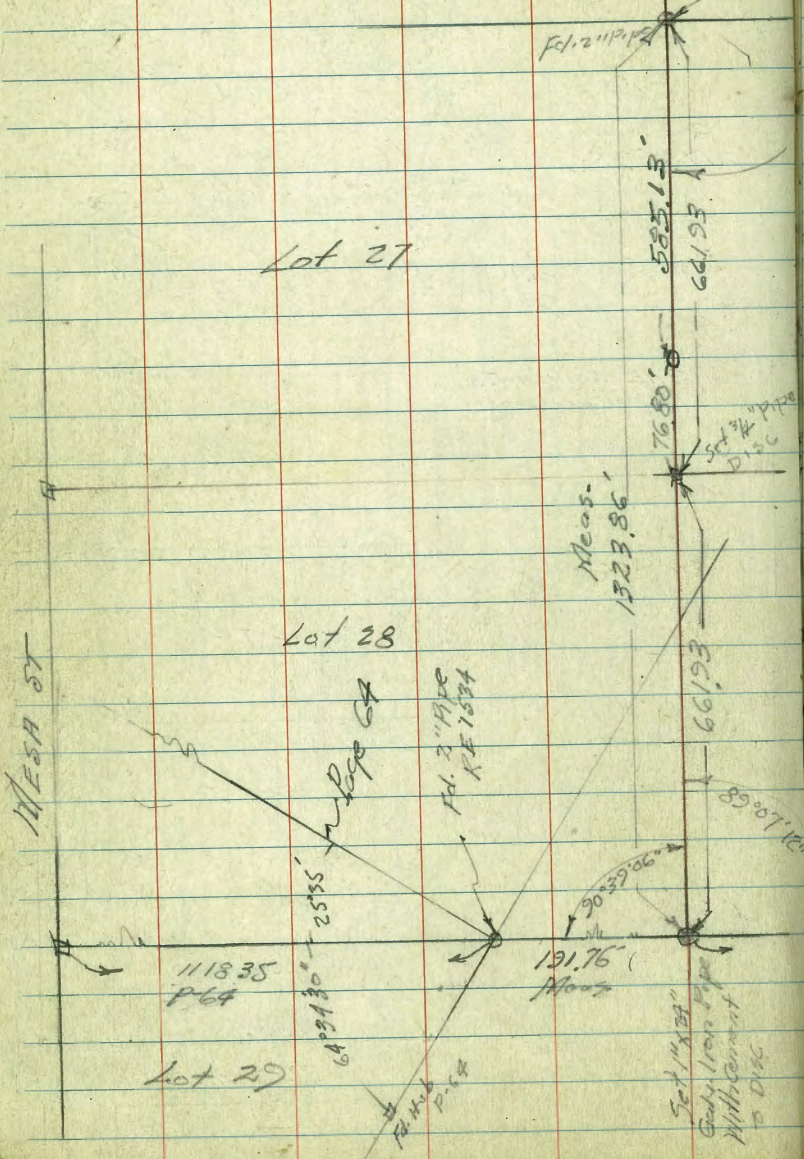 Fd. 2" Pipe
Lot 27
585.13'
661.93
76.80'
Set 3/4" Pipe
Disc
Meas.
1323.86'
MESA ST
Lot 28
Page 64
Fd. 2" Pipe
RE 1534
661.93
89°07'12"
90°39'06"
25.35'
64°34'30"
1118.35
P-64
191.76'
Meas
Lot 29
Fd. Hub
P-64
Set 1" x 24"
Galv. Iron Pipe
With Cement
Disc